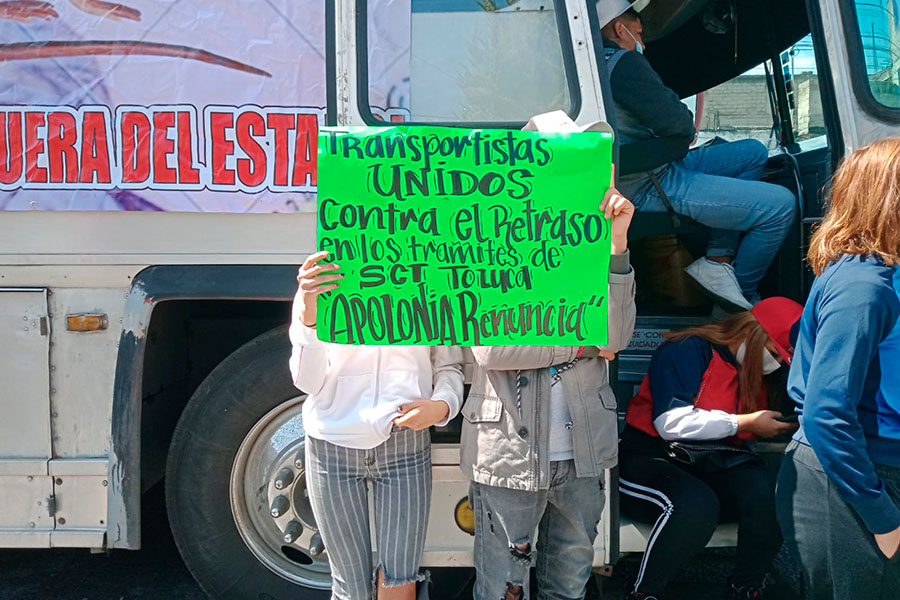 UERA DEL ESTA
Transportistas
UNIDOS
Contra el Retraso
en los tramites de
SCT Toluca
"APOLONIA Renuncia"